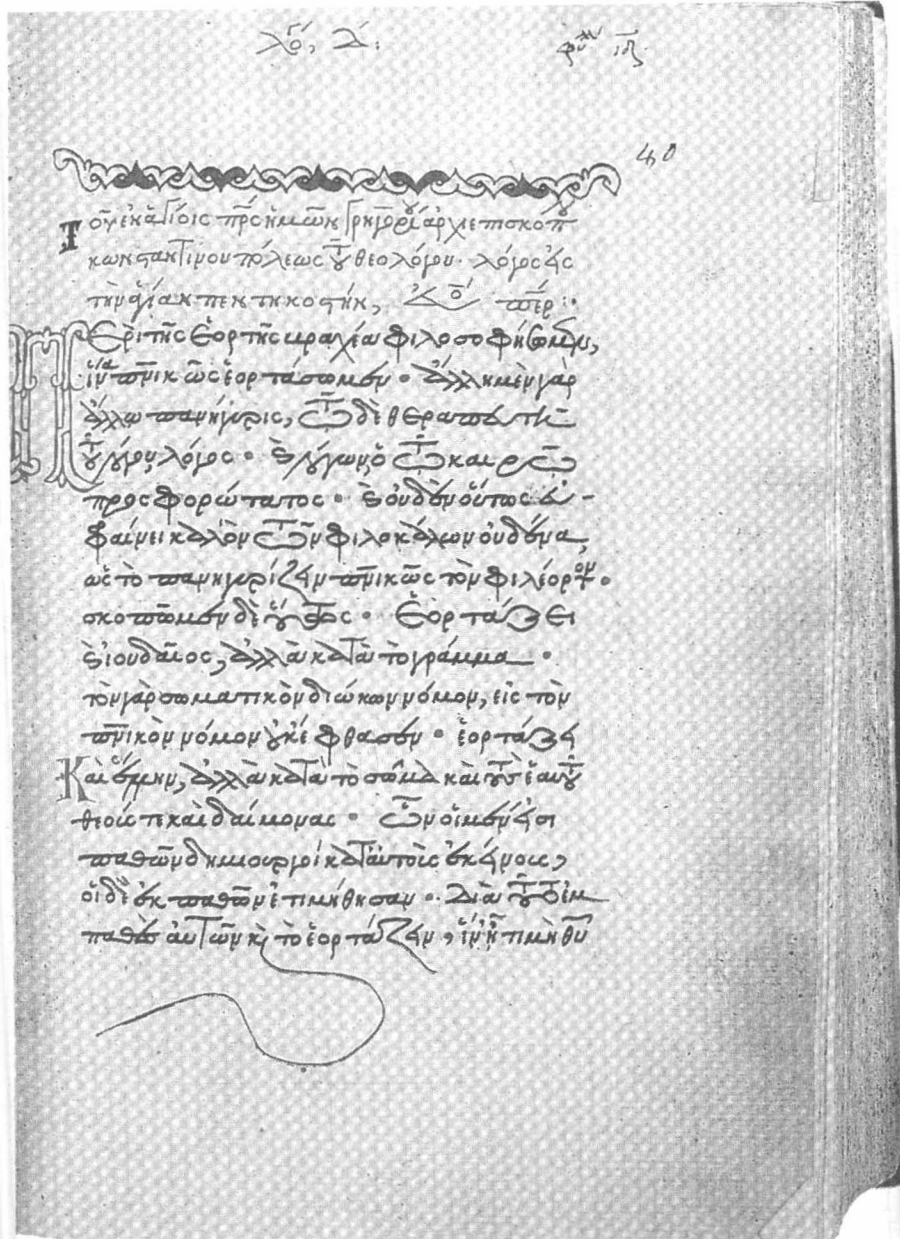 λό(γος), Δ :
φύλλ ιϛ
40
Τοῦ ἐν ἁγίοις πρς ἡμῶν Γρηγορίου ἀρχιεπισκόπ
κωνσταντίνου πόλεως τοῦ θεολόγου · λόγος εἰς
τὴν ἁγίαν πεντηκοστήν,
Περὶ τῆς ἑορτῆς βραχέα φιλοσοφήσωμεν,
ἵνα πνικῶς ἑορτάσωμεν · ἄλλη μὲν γὰρ
ἄλλω πανήγυρις, τῶ δὲ θεραπευτῆ
τοῦ λόγου λόγος · καὶ λόγων ὁ τῶ καιρῶ
προσφορώτατος · καὶ οὐδὲν οὕτως εὐ-
φραίνει καλὸν τῶν φιλοκάλων οὐδένα,
ὡς τὸ πανηγυρίζειν πνικῶς τὸν φιλέορτον ·
σκοπῶμεν δὲ οὕτως · Ἑορτάζει
καὶ ἰουδαῖος, ἀλλὰ κατὰ τὸ γράμμα ·
τὸν γὰρ σωματικὸν διώκων νόμον, εἰς τὸν
πνικὸν νόμον οὐκ ἔφθασεν · ἑορτάζει
Καὶ ἕλλην, ἀλλὰ κατὰ τὸ σῶμα καὶ τοὺς ἑαυτοῦ
θεούς τε καὶ δαίμονας · ὧν οἱ μέν εἰσι
παθῶν δημιουργοὶ κατ αὐτοὺς ἐκείνους,
οἱ δὲ ἐκ παθῶν ἐτιμήθησαν · Διὰ τοῦτο ἐμ
παθὲς αὐτῶν καὶ τὸ ἑορτάζειν, ἵν ἦ τιμὴ θυ